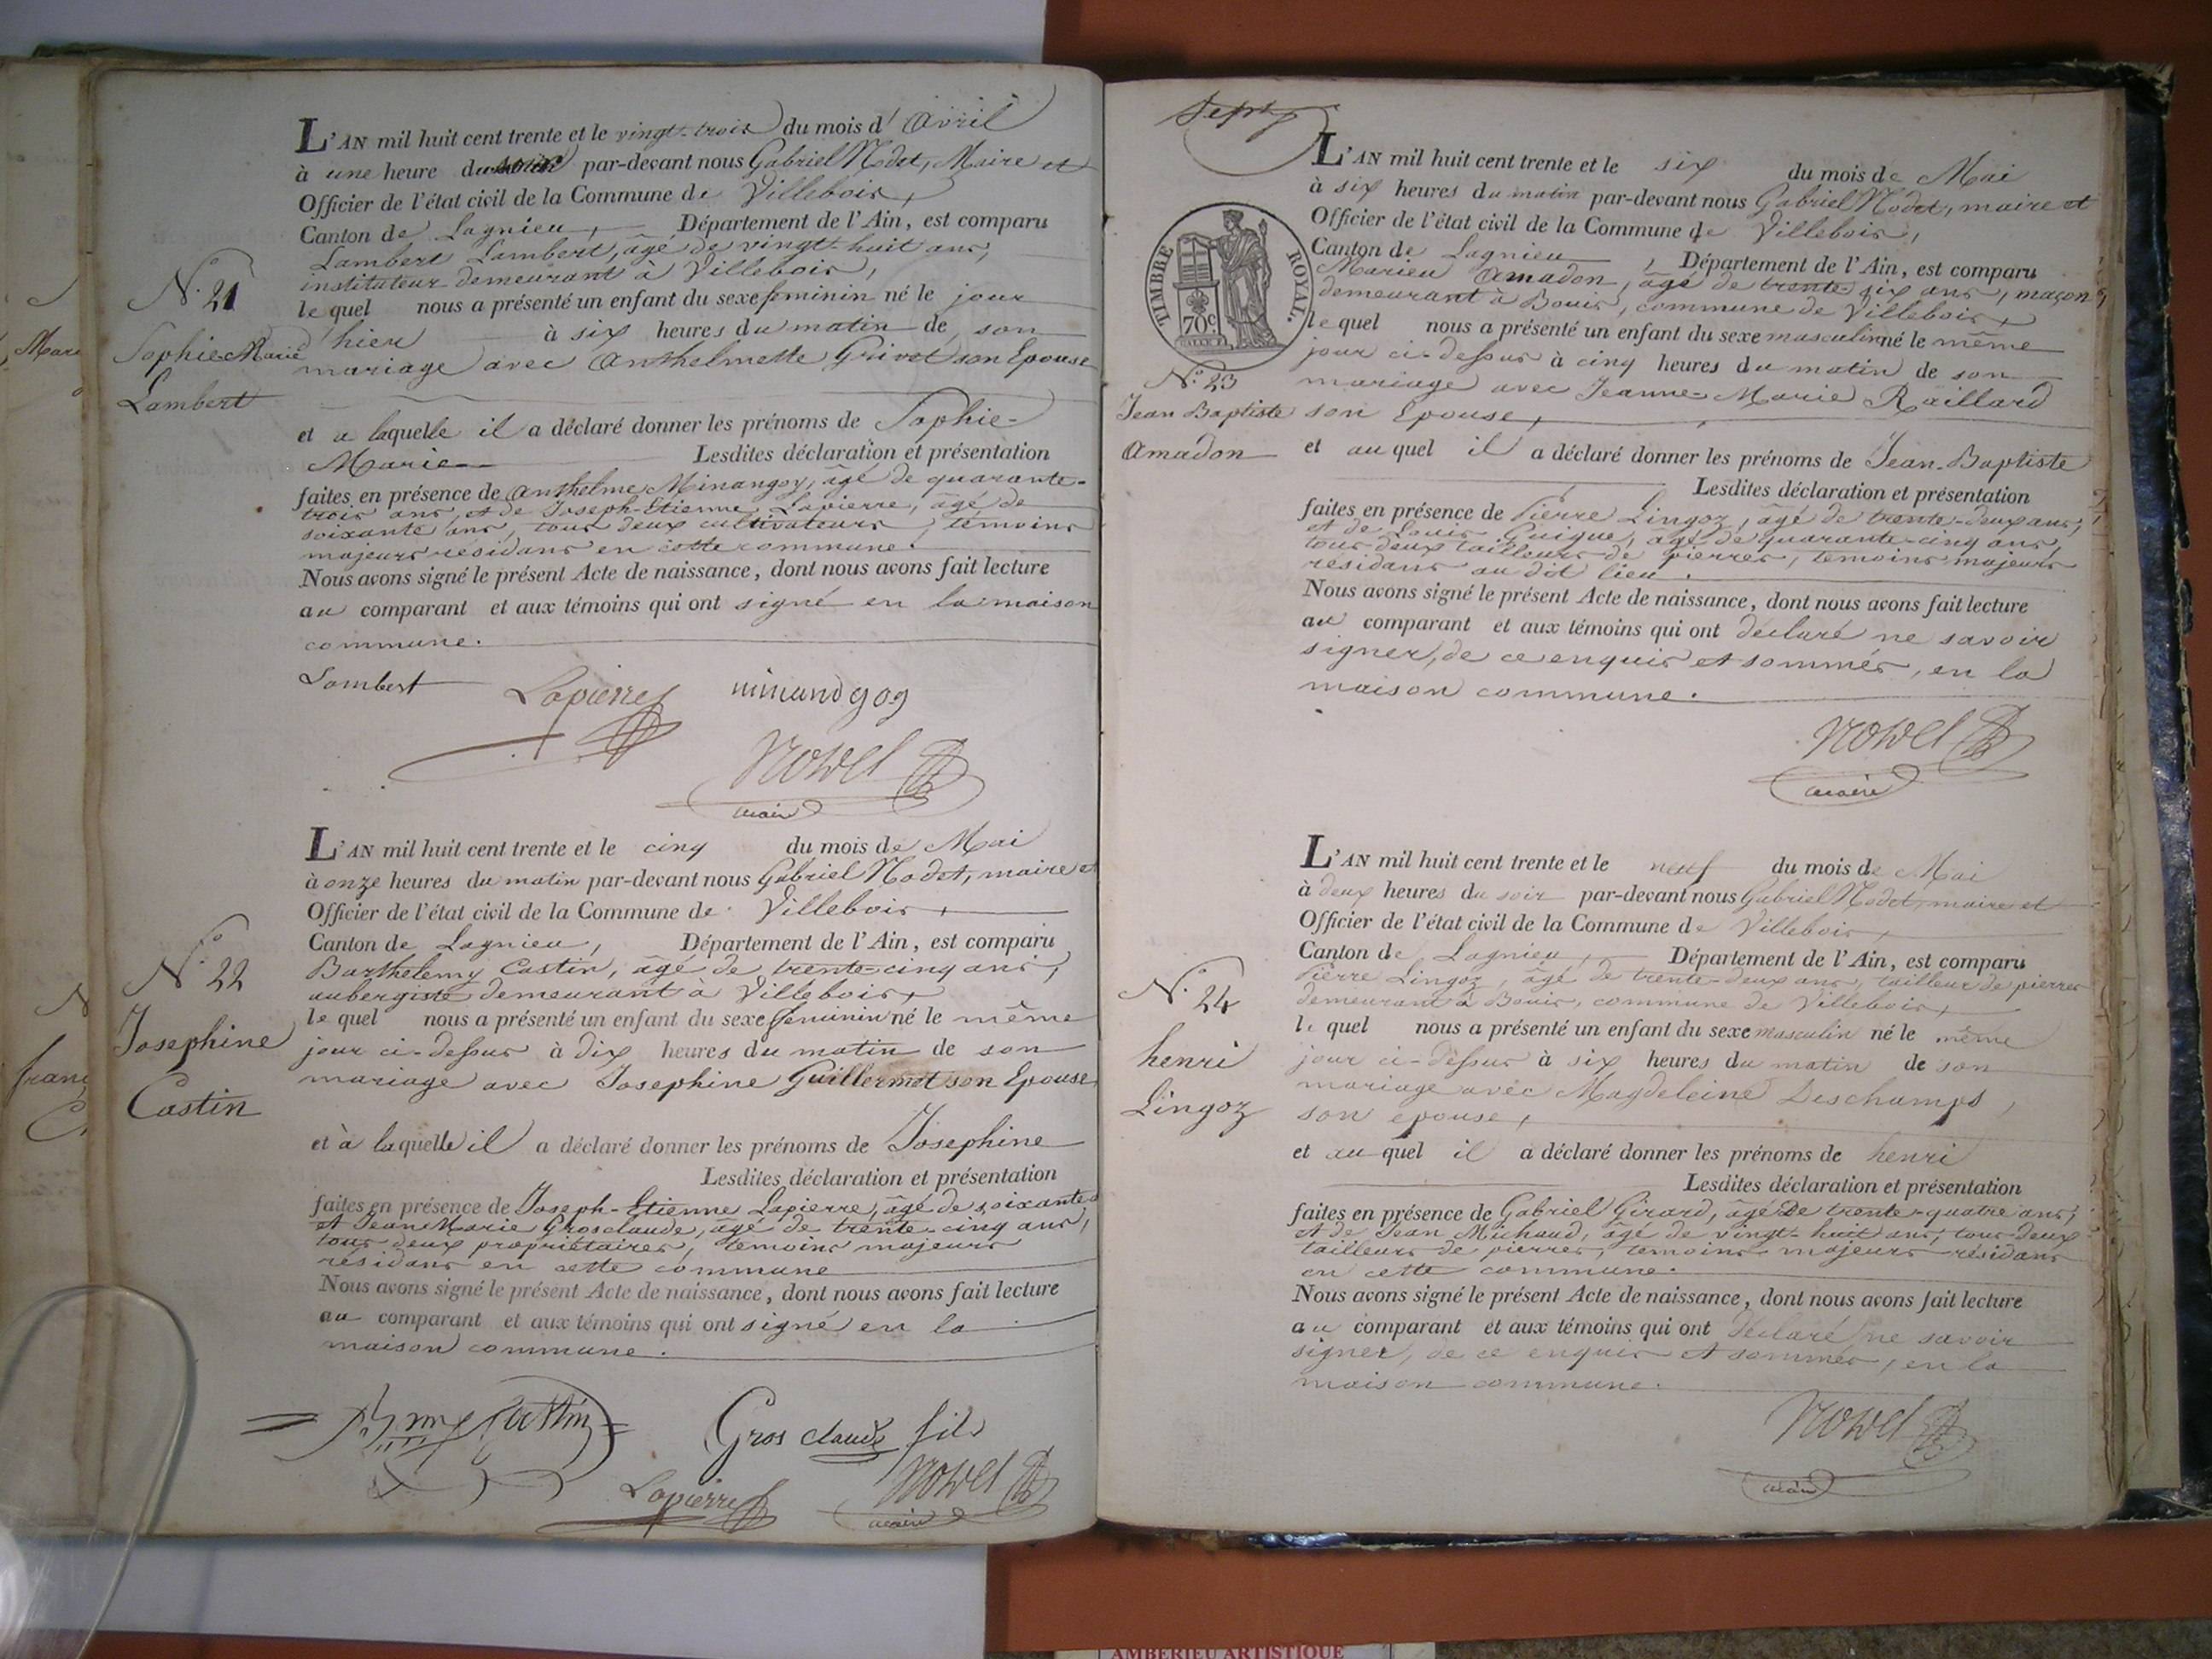 L'AN mil huit cent trente et le vingt-trois du mois d'Avril
à une heure du soir par-devant nous Gabriel Nodet, Maire et
Officier de l'état civil de la Commune de Villebois,
Canton de Lagnieu, Département de l'Ain, est comparu
Lambert Lambert, âgé de vingt-huit ans,
instituteur demeurant à Villebois,
le quel nous a présenté un enfant du sexe feminin né le jour
d'hier à six heures du matin de son
mariage avec Anthelmette Grivet son Epouse
et a laquelle il a déclaré donner les prénoms de Sophie-
Marie Lesdites déclaration et présentation
faites en présence de Anthelme Minangoy, âgé de quarante-
trois ans, et de Joseph-Etienne Lapierre, âgé de
soixante ans, tous deux cultivateurs, témoins
majeurs résidans en cette commune.
Nous avons signé le présent Acte de naissance, dont nous avons fait lecture
au comparant et aux témoins qui ont signé en la maison
commune.
N.° 21
Sophie Marie
Lambert
Lambert Lapierre
maire
L'AN mil huit cent trente et le cinq du mois de Mai
à onze heures du matin par-devant nous Gabriel Nodet, maire et
Officier de l'état civil de la Commune de Villebois,
Canton de Lagnieu, Département de l'Ain, est comparu
Barthelemy Castin, âgé de trente-cinq ans,
aubergiste demeurant à Villebois,
le quel nous a présenté un enfant du sexe feminin né le même
jour ci-dessus à dix heures du matin de son
mariage avec Josephine Guillermet son Epouse
et à laquelle il a déclaré donner les prénoms de Josephine
Lesdites déclaration et présentation
faites en présence de Joseph-Etienne Lapierre, âgé de soixante
et Jean Marie Grosclaude, âgé de trente-cinq ans,
tous deux propriétaires, temoins majeurs
résidans en cette commune
Nous avons signé le présent Acte de naissance, dont nous avons fait lecture
au comparant et aux témoins qui ont signé en la
maison commune.
N.° 22
Josephine
Castin
Castin Gros claude fils
Lapierre
maire
L'AN mil huit cent trente et le six du mois de Mai
à six heures du matin par-devant nous Gabriel Nodet, maire et
Officier de l'état civil de la Commune de Villebois,
Canton de Lagnieu, Département de l'Ain, est comparu
Marieu Amadon, âgé de trente-six ans, maçon
demeurant à Bouis, commune de Villebois,
le quel nous a présenté un enfant du sexe masculin né le même
jour ci-dessus à cinq heures du matin de son
mariage avec Jeanne-Marie Raillard
son Epouse,
et au quel il a déclaré donner les prénoms de Jean-Baptiste
Lesdites déclaration et présentation
faites en présence de Pierre Lingoz, âgé de trente-deux ans,
et de Louis Guigue, âgé de quarante-cinq ans,
tous deux tailleurs de pierres, temoins majeurs
résidans au dit lieu.
Nous avons signé le présent Acte de naissance, dont nous avons fait lecture
au comparant et aux témoins qui ont déclaré ne savoir
signer, de ce enquis et sommés, en la
maison commune.
TIMBRE ROYAL.
70c
N.° 23
Jean Baptiste
Amadon
maire
L'AN mil huit cent trente et le neuf du mois de Mai
à deux heures du soir par-devant nous Gabriel Nodet, maire et
Officier de l'état civil de la Commune de Villebois,
Canton de Lagnieu, Département de l'Ain, est comparu
Pierre Lingoz, âgé de trente-deux ans, tailleur de pierres
demeurant à Bouis, commune de Villebois,
le quel nous a présenté un enfant du sexe masculin né le même
jour ci-dessus à six heures du matin de son
mariage avec Magdeleine Deschamps,
son epouse,
et au quel il a déclaré donner les prénoms de henri
Lesdites déclaration et présentation
faites en présence de Gabriel Girard, âgé de trente-quatre ans,
et de Jean Michaud, âgé de vingt-huit ans, tous deux
tailleurs de pierres, temoins majeurs résidans
en cette commune.
Nous avons signé le présent Acte de naissance, dont nous avons fait lecture
au comparant et aux témoins qui ont déclaré ne savoir
signer, de ce enquis et sommés, en la
maison commune.
N.° 24
henri
Lingoz
maire
AMBERIEU ARTISTIQUE